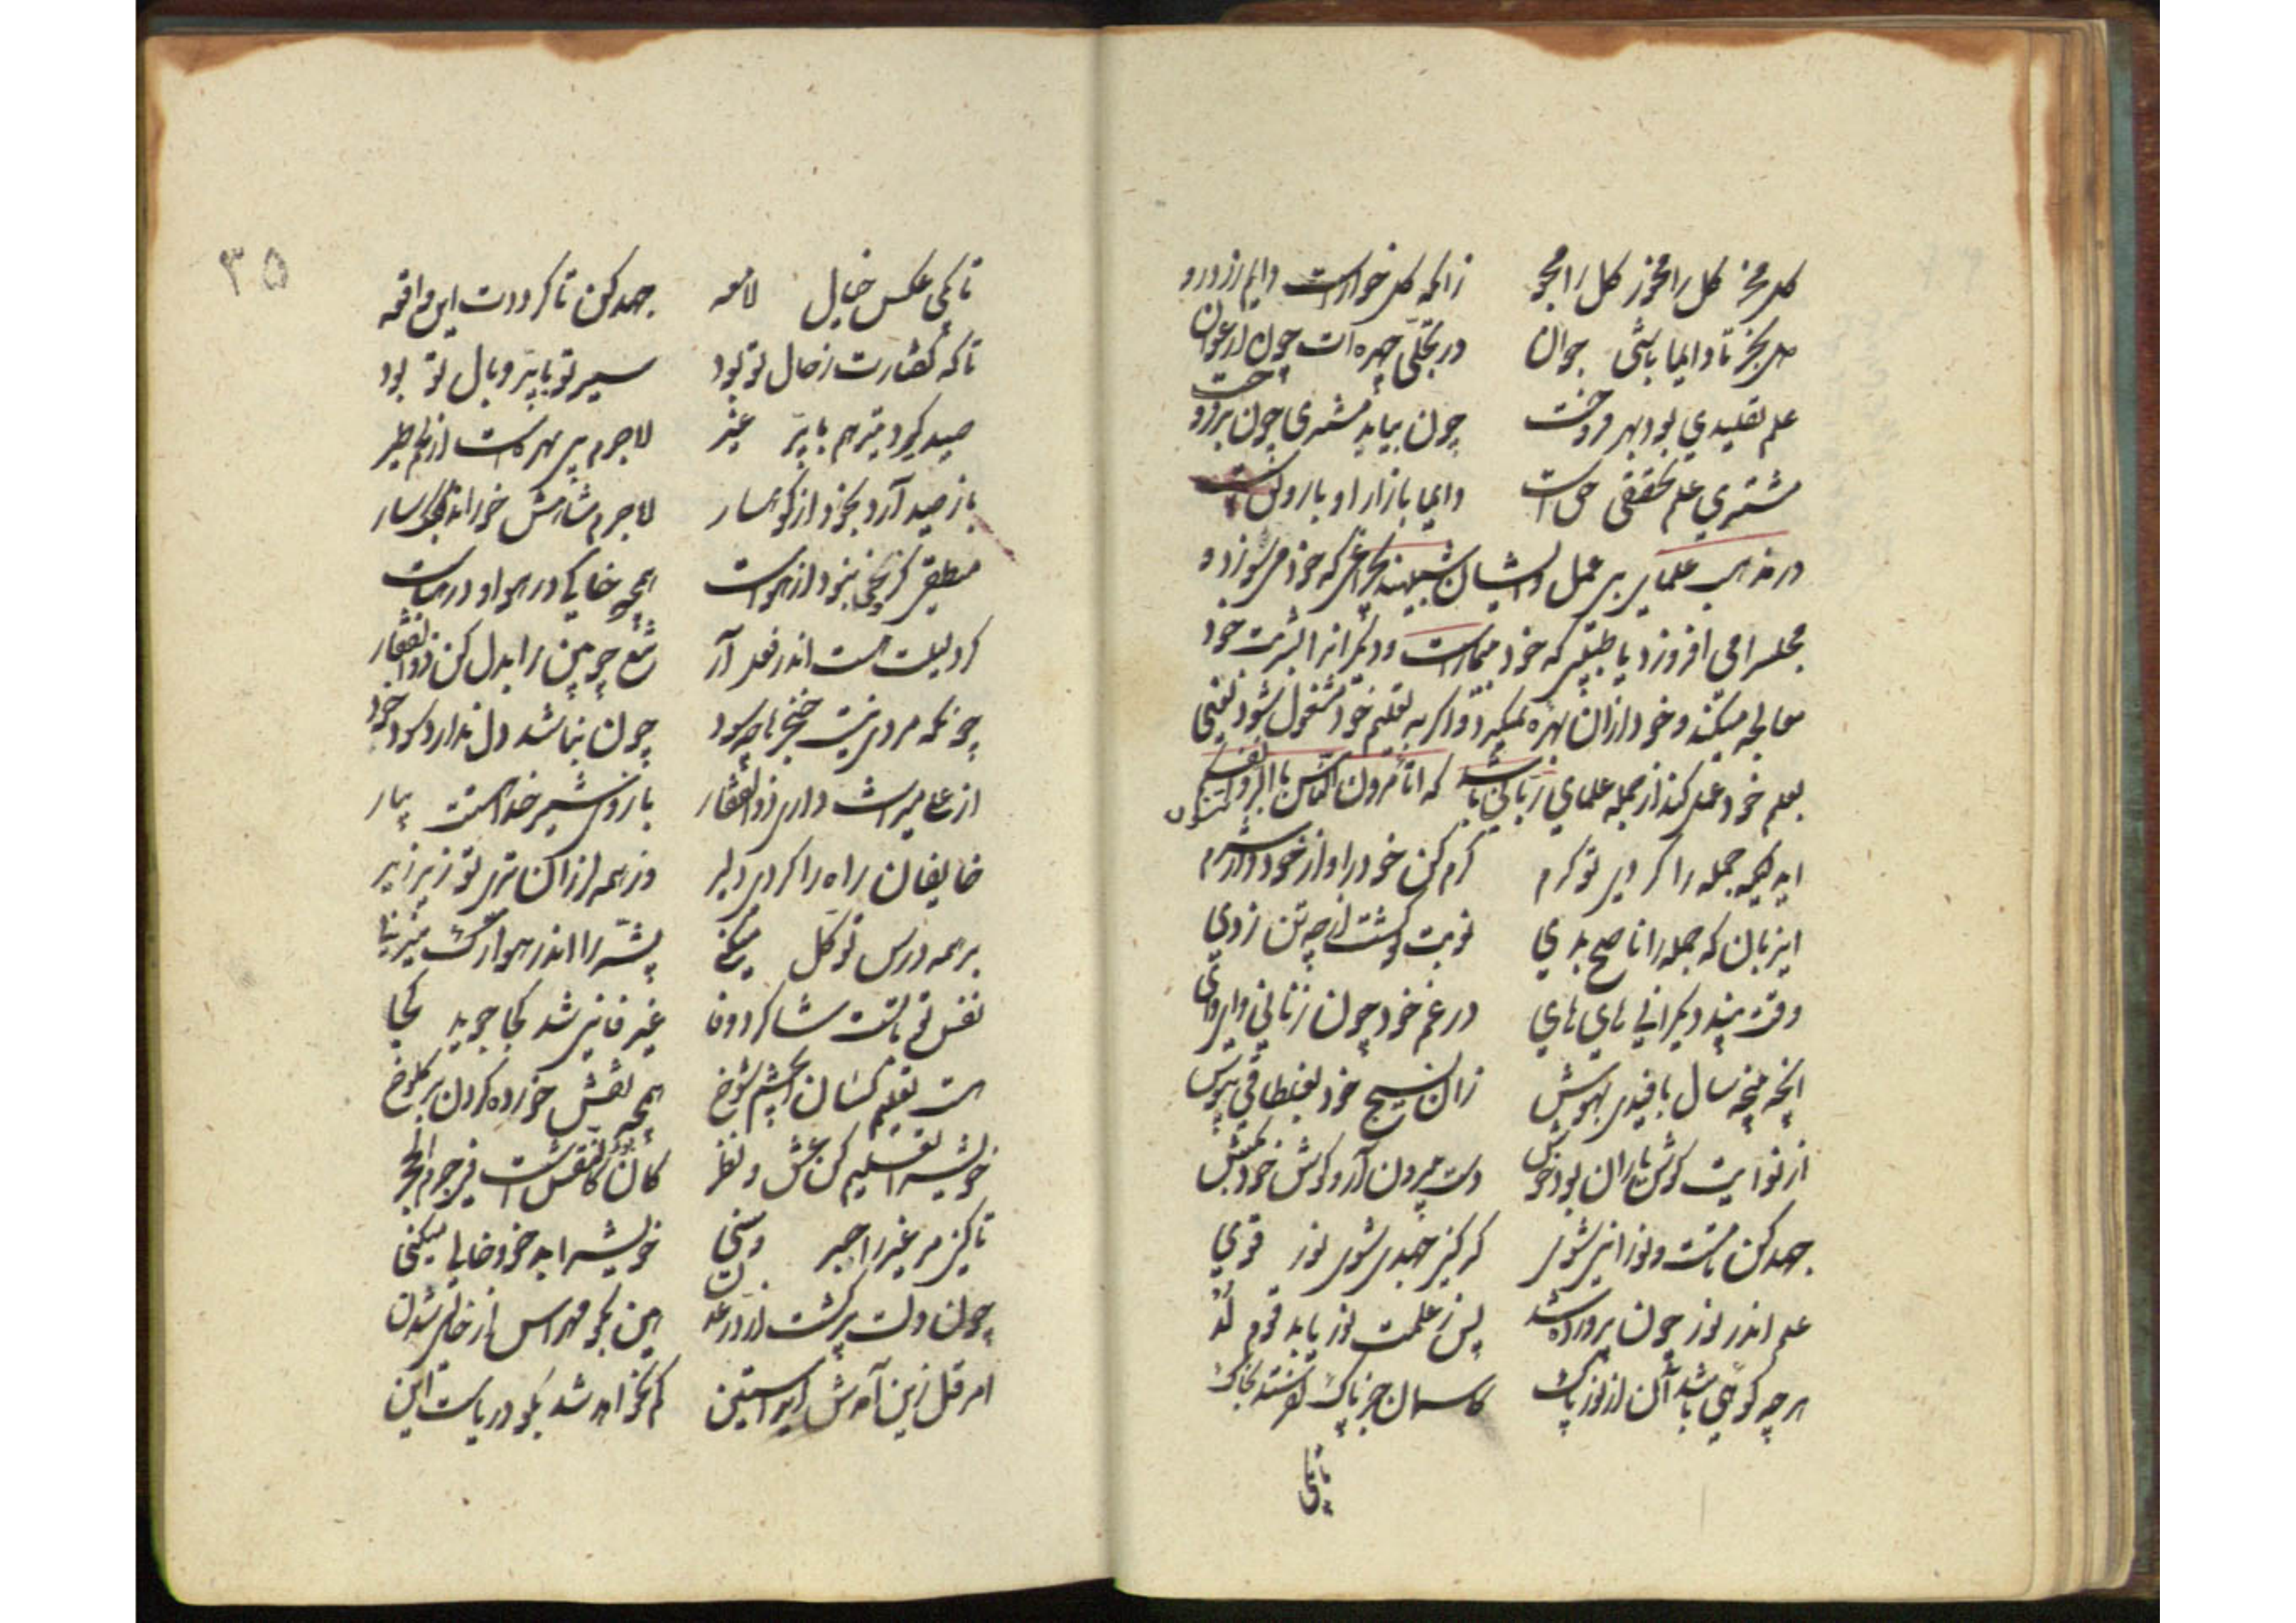 گل مخر گل را مخور گل را مجو زانکه گل خوارست دایم زردرو
دل بخر تا دایما باشی جوان در تجلی چهره‌ات چون ارغوان
علم تقلیدی بود بهر فروخت چون بیابد مشتری چون برفروخت
مشتری علم تحقیقی حق است دایما بازار او با رونقست
در مذهب علمای بی عمل و ایشان شبیهند بچراغی که خود می سوزد و
مجلس را می افروزد یا طبیبی که خود بیمارست و دیگرانرا شربت خود
معالجه میکند و خود ازان بهره نمیگیرد و اگر به تعلیم خود مشغول شود یعنی
بعلم خود عمل کند از جمله علمای ربانی باشد که اتأمرون الناس بالبر و تنسون انفسکم
ایکه جمله را کردی تو گرم گرم کن خود را و از خود دار شرم
ای زبان که جمله را ناصح بدی نوبت تو گشت از چه تن زدی
وقت پند دیگرانی های های در غم خود چون زنانی وای وای
آنچه پنجه سال بافیدی بهوش زان نسیج خود بغلطاقی بپوش
از نوایت گوش یاران بود خوش دست بیرون آر و گوش خود بکش
جهد کن تا مست و نورانی شوی گر کنی جهدی شوی نور قوی
علم اندر نور چون پرورده شد پس ز علمت نور یابد قوم لد
هرچه گویی باشد آن از نور پاک کاسمان جز پاک نفرستد بخاک
تا بکی
۳۵
تا بکی عکس خیال لامعه جهد کن تا گرددت این واقعه
تا که گفتارت ز حال تو بود سیر تو با پر و بال تو بود
صید گیرد تیر هم با پر غیر لاجرم بی بهره است از لحم طیر
باز صید آرد بخود از کوهسار لاجرم شاهش خوراند کبک و سار
منطقی کز وحی نبود از هواست همچو خاکی در هوا و در هباست
گر دلیلت هست اندر فعل آر تیغ چوبین را بدل کن ذوالفقار
چونکه مردی نیست خنجرها چه سود چون نباشد دل ندارد سود خود
از علی میراث داری ذوالفقار بازوی شیر خدا هستت بیار
خایفان راه را کردی دلیر وز همه لرزان تری تو زیر زیر
بر همه درس توکل میکنی پشه را اندر هوا رگ میزنی
نفس تو با تست شاگرد وفا غیر فانی شد کجا جوید کجا
هست تعلیم کسان ای چشم شوخ همچو نقش خورده کردن بر کلوخ
خویش را تعلیم کن عشق و نظر کان بود کالنقش فی جرم الحجر
تا کنی مر غیر را حبر و سنی خویش را بدخو و خالی میکنی
چون دلت پیوست با آن در عدن هین بگو مهراس از خالی شدن
امر قل زین آمدش ای راستین کم نخواهد شد بگو دریاست این